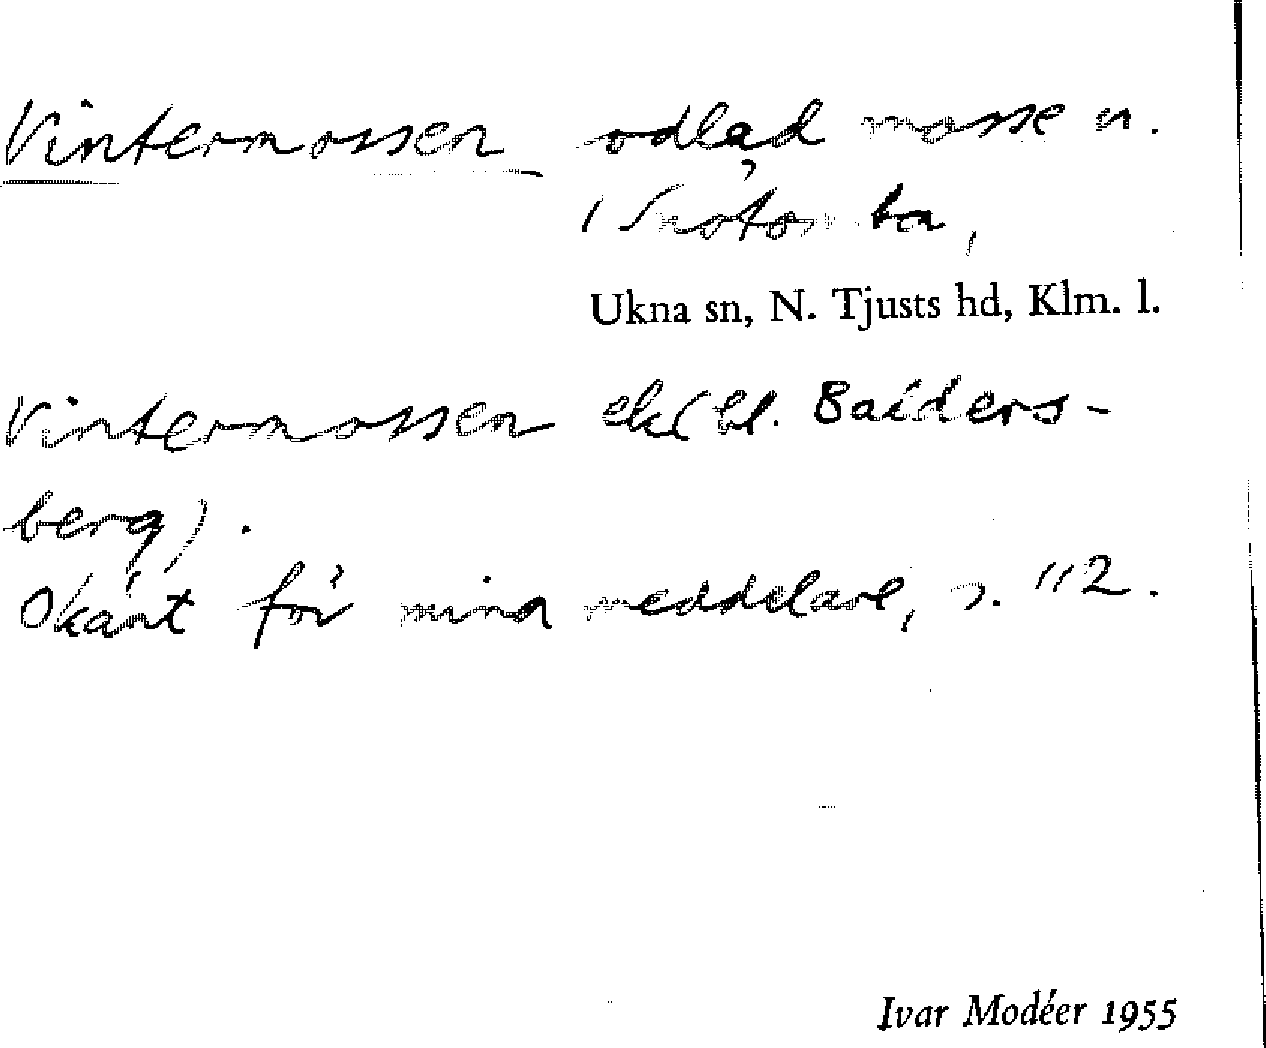 Vintermossen odlad mosse n.
Ukna sn, N. Tjusts hd, Klm. l.
Vintermossen ek(bl. Baíders-
berg).
Okänt för mina meddelare, s. 112.
Ivar Modéer 1955